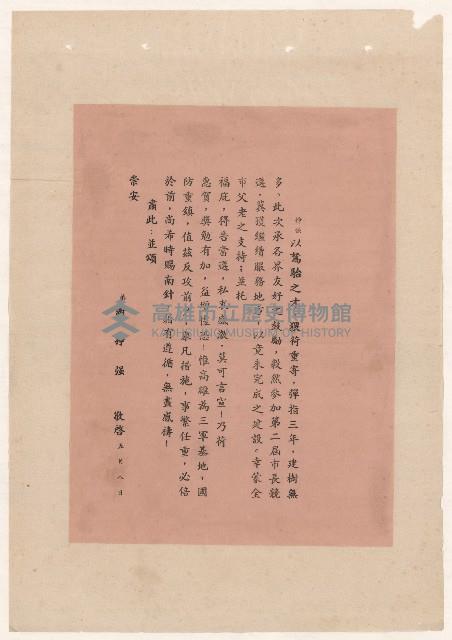 錚强以駑駘之才，猥荷重寄，彈指三年，建樹無
多、此次承各界友好鼓勵，毅然參加第二屆市長競
選，冀獲繼續服務地方，以竟未完成之建設。幸蒙全
市父老之支持；並托
福庇，得告當選，私衷感激，莫可言宣！乃荷
惠賀，奬勉有加，益增惶悚！惟高雄為三軍基地，國
防重鎮，值茲反攻前夕，舉凡措施，事繁任重，必倍
於前，尚希時賜南針，俾有遵循，無盡感禱！
肅此：並頌
崇安
弟謝錚强 敬啓 五月八日
高雄市立歷史博物館
KAOHSIUNG MUSEUM OF HISTORY